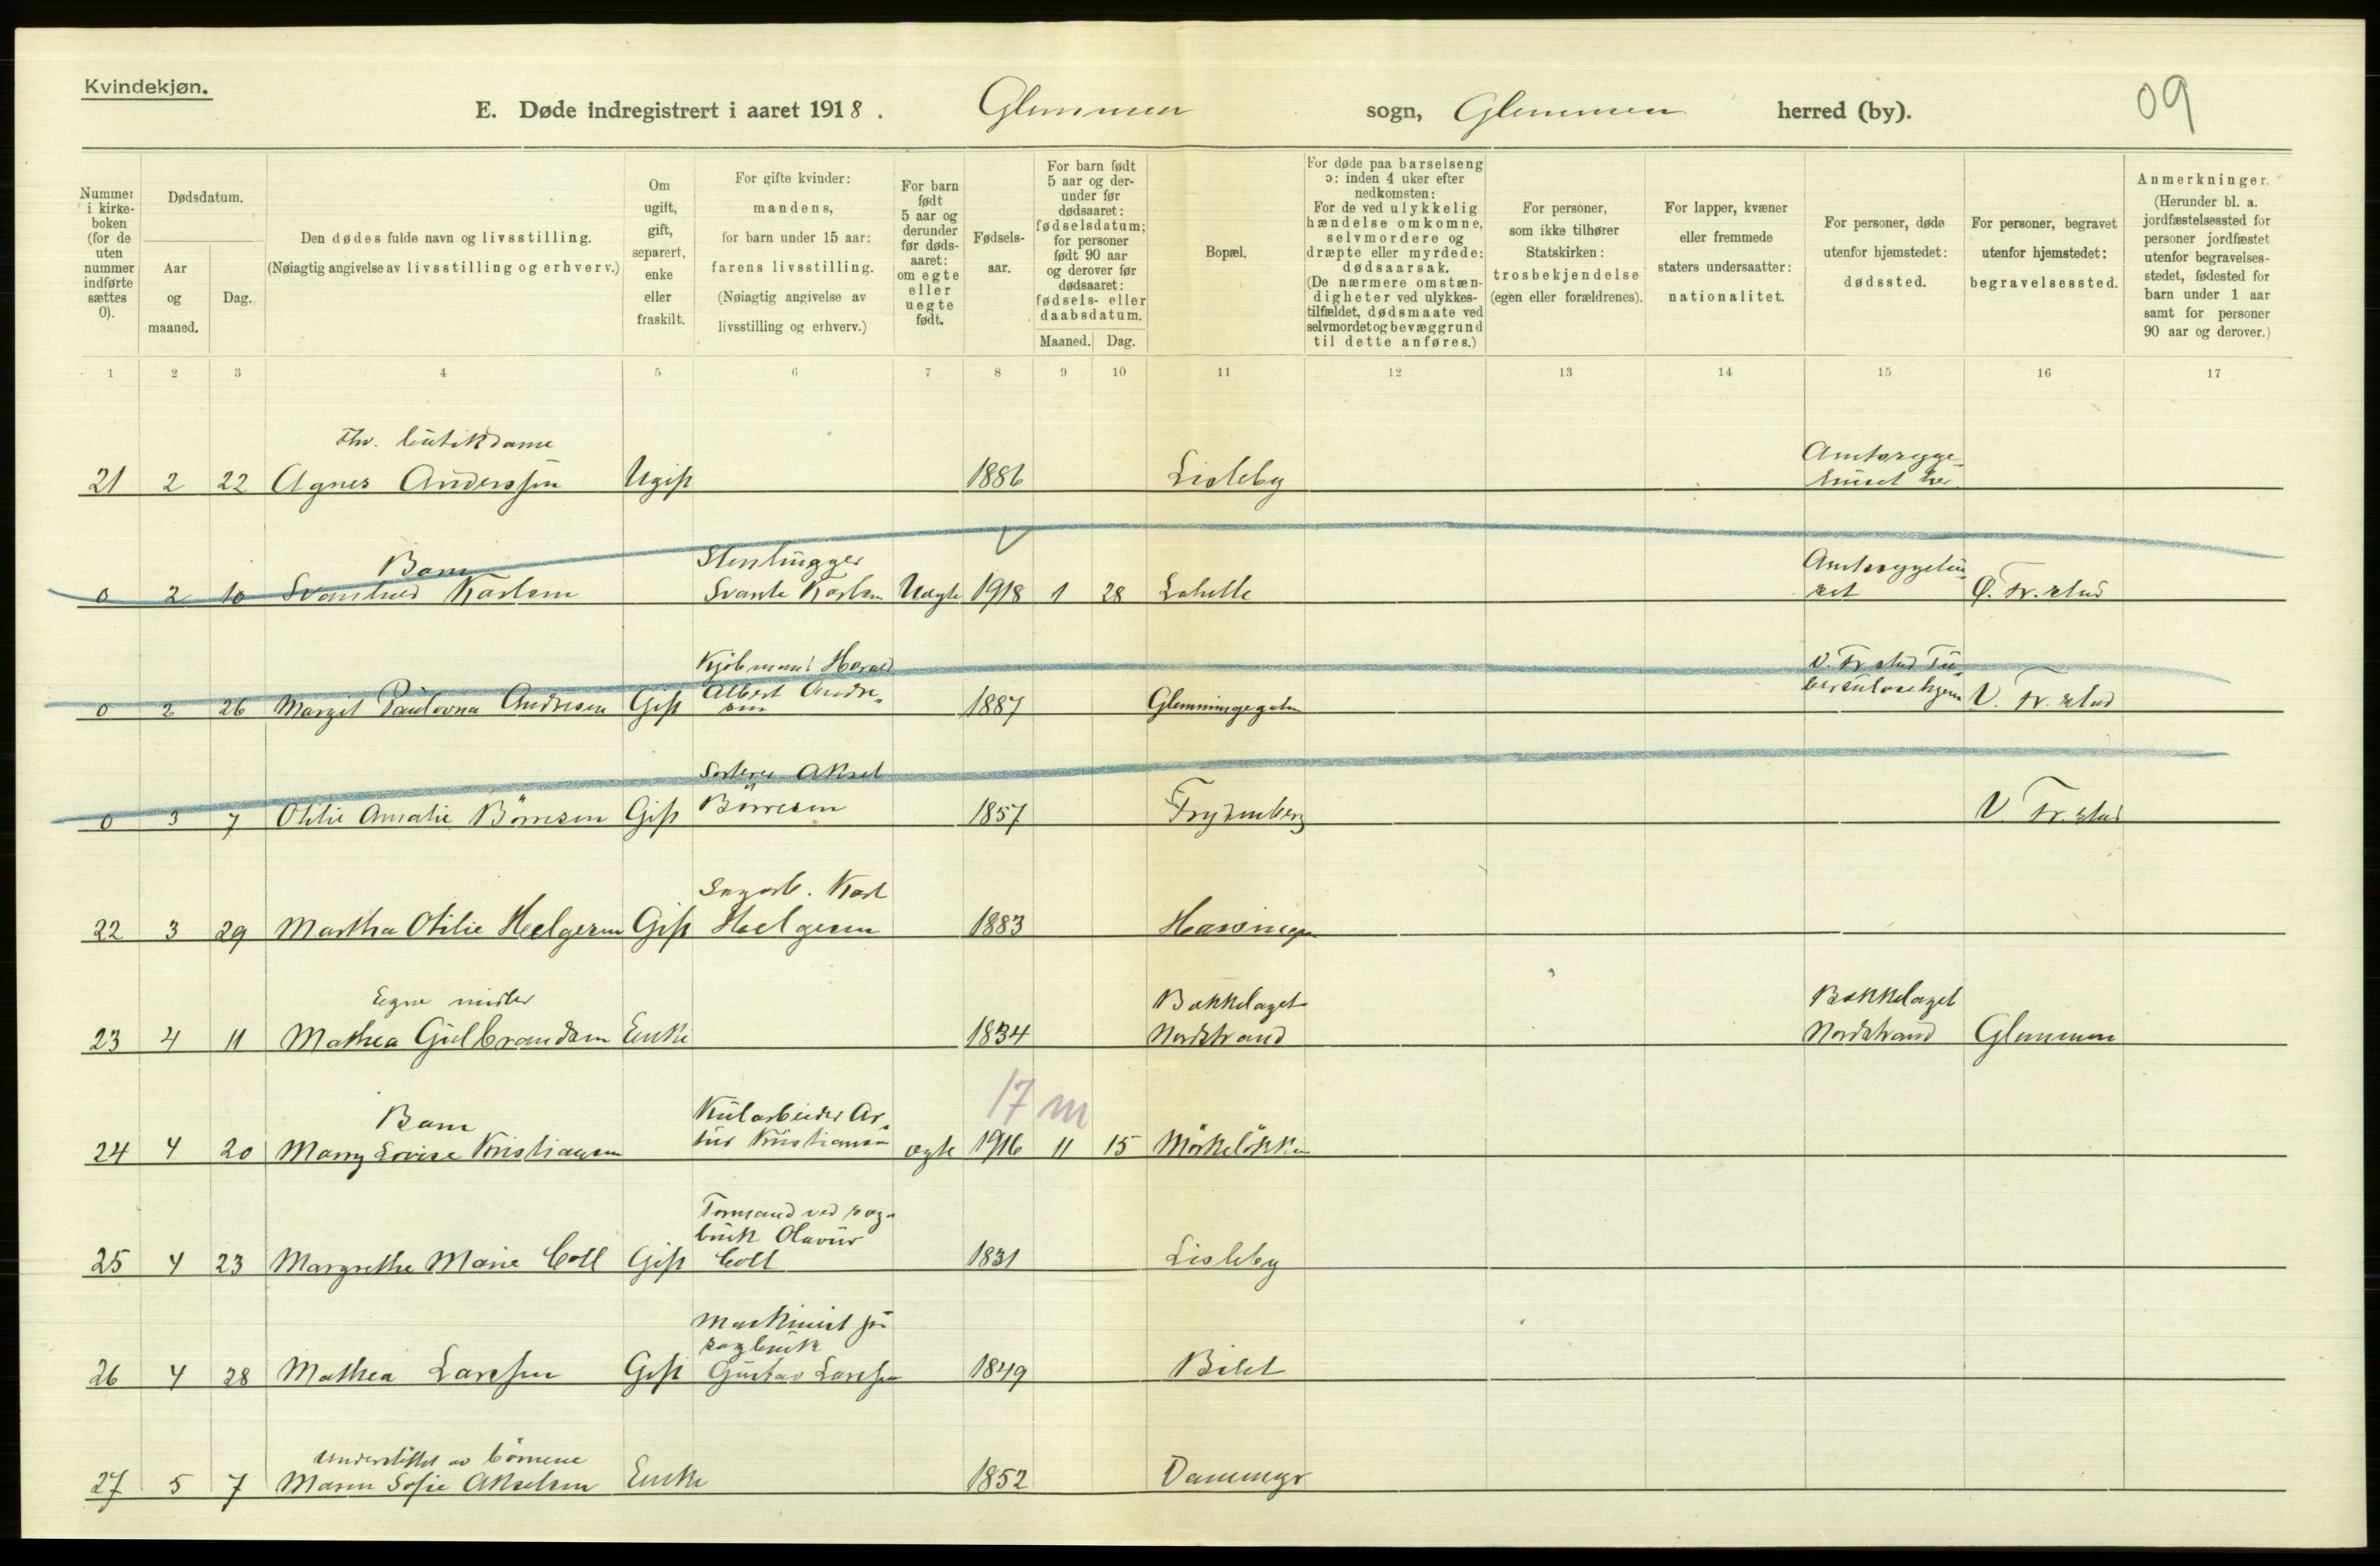 Kvindekjøn.
E. Døde indregistrert i aaret 1918. Glemmen sogn, Glemmen herred (by).
09
Nummer i kirke-boken (for de uten nummer indførte sættes 0).
Dødsdatum.
Aar og maaned.
Dag.
Den dødes fulde navn og livsstilling.
(Nøiagtig angivelse av livsstilling og erhverv.)
Om ugift, gift, separert, enke eller fraskilt.
For gifte kvinder: mandens, for barn under 15 aar: farens livsstilling.
(Nøiagtig angivelse av livsstilling og erhverv.)
For barn født 5 aar og derunder før døds-aaret: om egte eller uegte født.
Fødsels-aar.
For barn født 5 aar og der-under før dødsaaret: fødselsdatum; for personer født 90 aar og derover før dødsaaret: fødsels- eller daabsdatum.
Maaned. Dag.
Bopæl.
For døde paa barselseng ɔ: inden 4 uker efter nedkomsten:
For de ved ulykkelig hændelse omkomne, selvmordere og dræpte eller myrdede: dødsaarsak.
(De nærmere omstæn-digheter ved ulykkes-tilfældet, dødsmaate ved selvmordet og bevæggrund til dette anføres.)
For personer, som ikke tilhører Statskirken: trosbekjendelse (egen eller forældrenes).
For lapper, kvæner eller fremmede staters undersaatter: nationalitet.
For personer, døde utenfor hjemstedet: dødssted.
For personer, begravet utenfor hjemstedet: begravelsessted.
Anmerkninger.
(Herunder bl. a. jordfæstelsessted for personer jordfæstet utenfor begravelses-stedet, fødested for barn under 1 aar samt for personer 90 aar og derover.)
1 2 3 4 5 6 7 8 9 10 11 12 13 14 15 16 17
Fhv. butikdame
21 2 22 Agnes Anderssen Ugift 1886 Lisleby Amtssyge-
huset her
Barn Stenhugger Amtssygehu-
0 2 10 Svanhild Karlsen Svante Karlsen Uægte 1918 1 28 Labelle set Ø. Fr.stad
Kjøbmand Harald V. Fr.stad Tu-
0 2 26 Margit Paulovna Andresen Gift Albert Andre- 1887 Glemmingegaten berkulosehjem V. Fr.stad
sen
Sorterer Aksel
0 3 7 Otilie Amalie Börresen Gift Börresen 1857 Frydenberg V. Fr.stad
Sagarb. Karl
22 3 29 Martha Otilie Helgesen Gift Helgesen 1883 Hassingen
Egne midler Bækkelaget Bækkelaget
23 4 11 Mathea Gulbrandsen Enke 1834 Nordstrand Nordstrand Glemmen
17 m
Barn Kularbeider Ar-
24 4 20 Marry Lovise Kristiansen tur Kristiansen ægte 1916 11 15 Mörkelökken
Formand ved sag-
bruk Olavur
25 4 23 Margrethe Marie Coll Gift Coll 1831 Lisleby
Maskinist på
sagbruk
26 4 28 Mathea Larssen Gift Gustav Larssen 1849 Bilet
Understöttet av börnene
27 5 7 Maren Sofie Akselsen Enke 1852 Dammyr